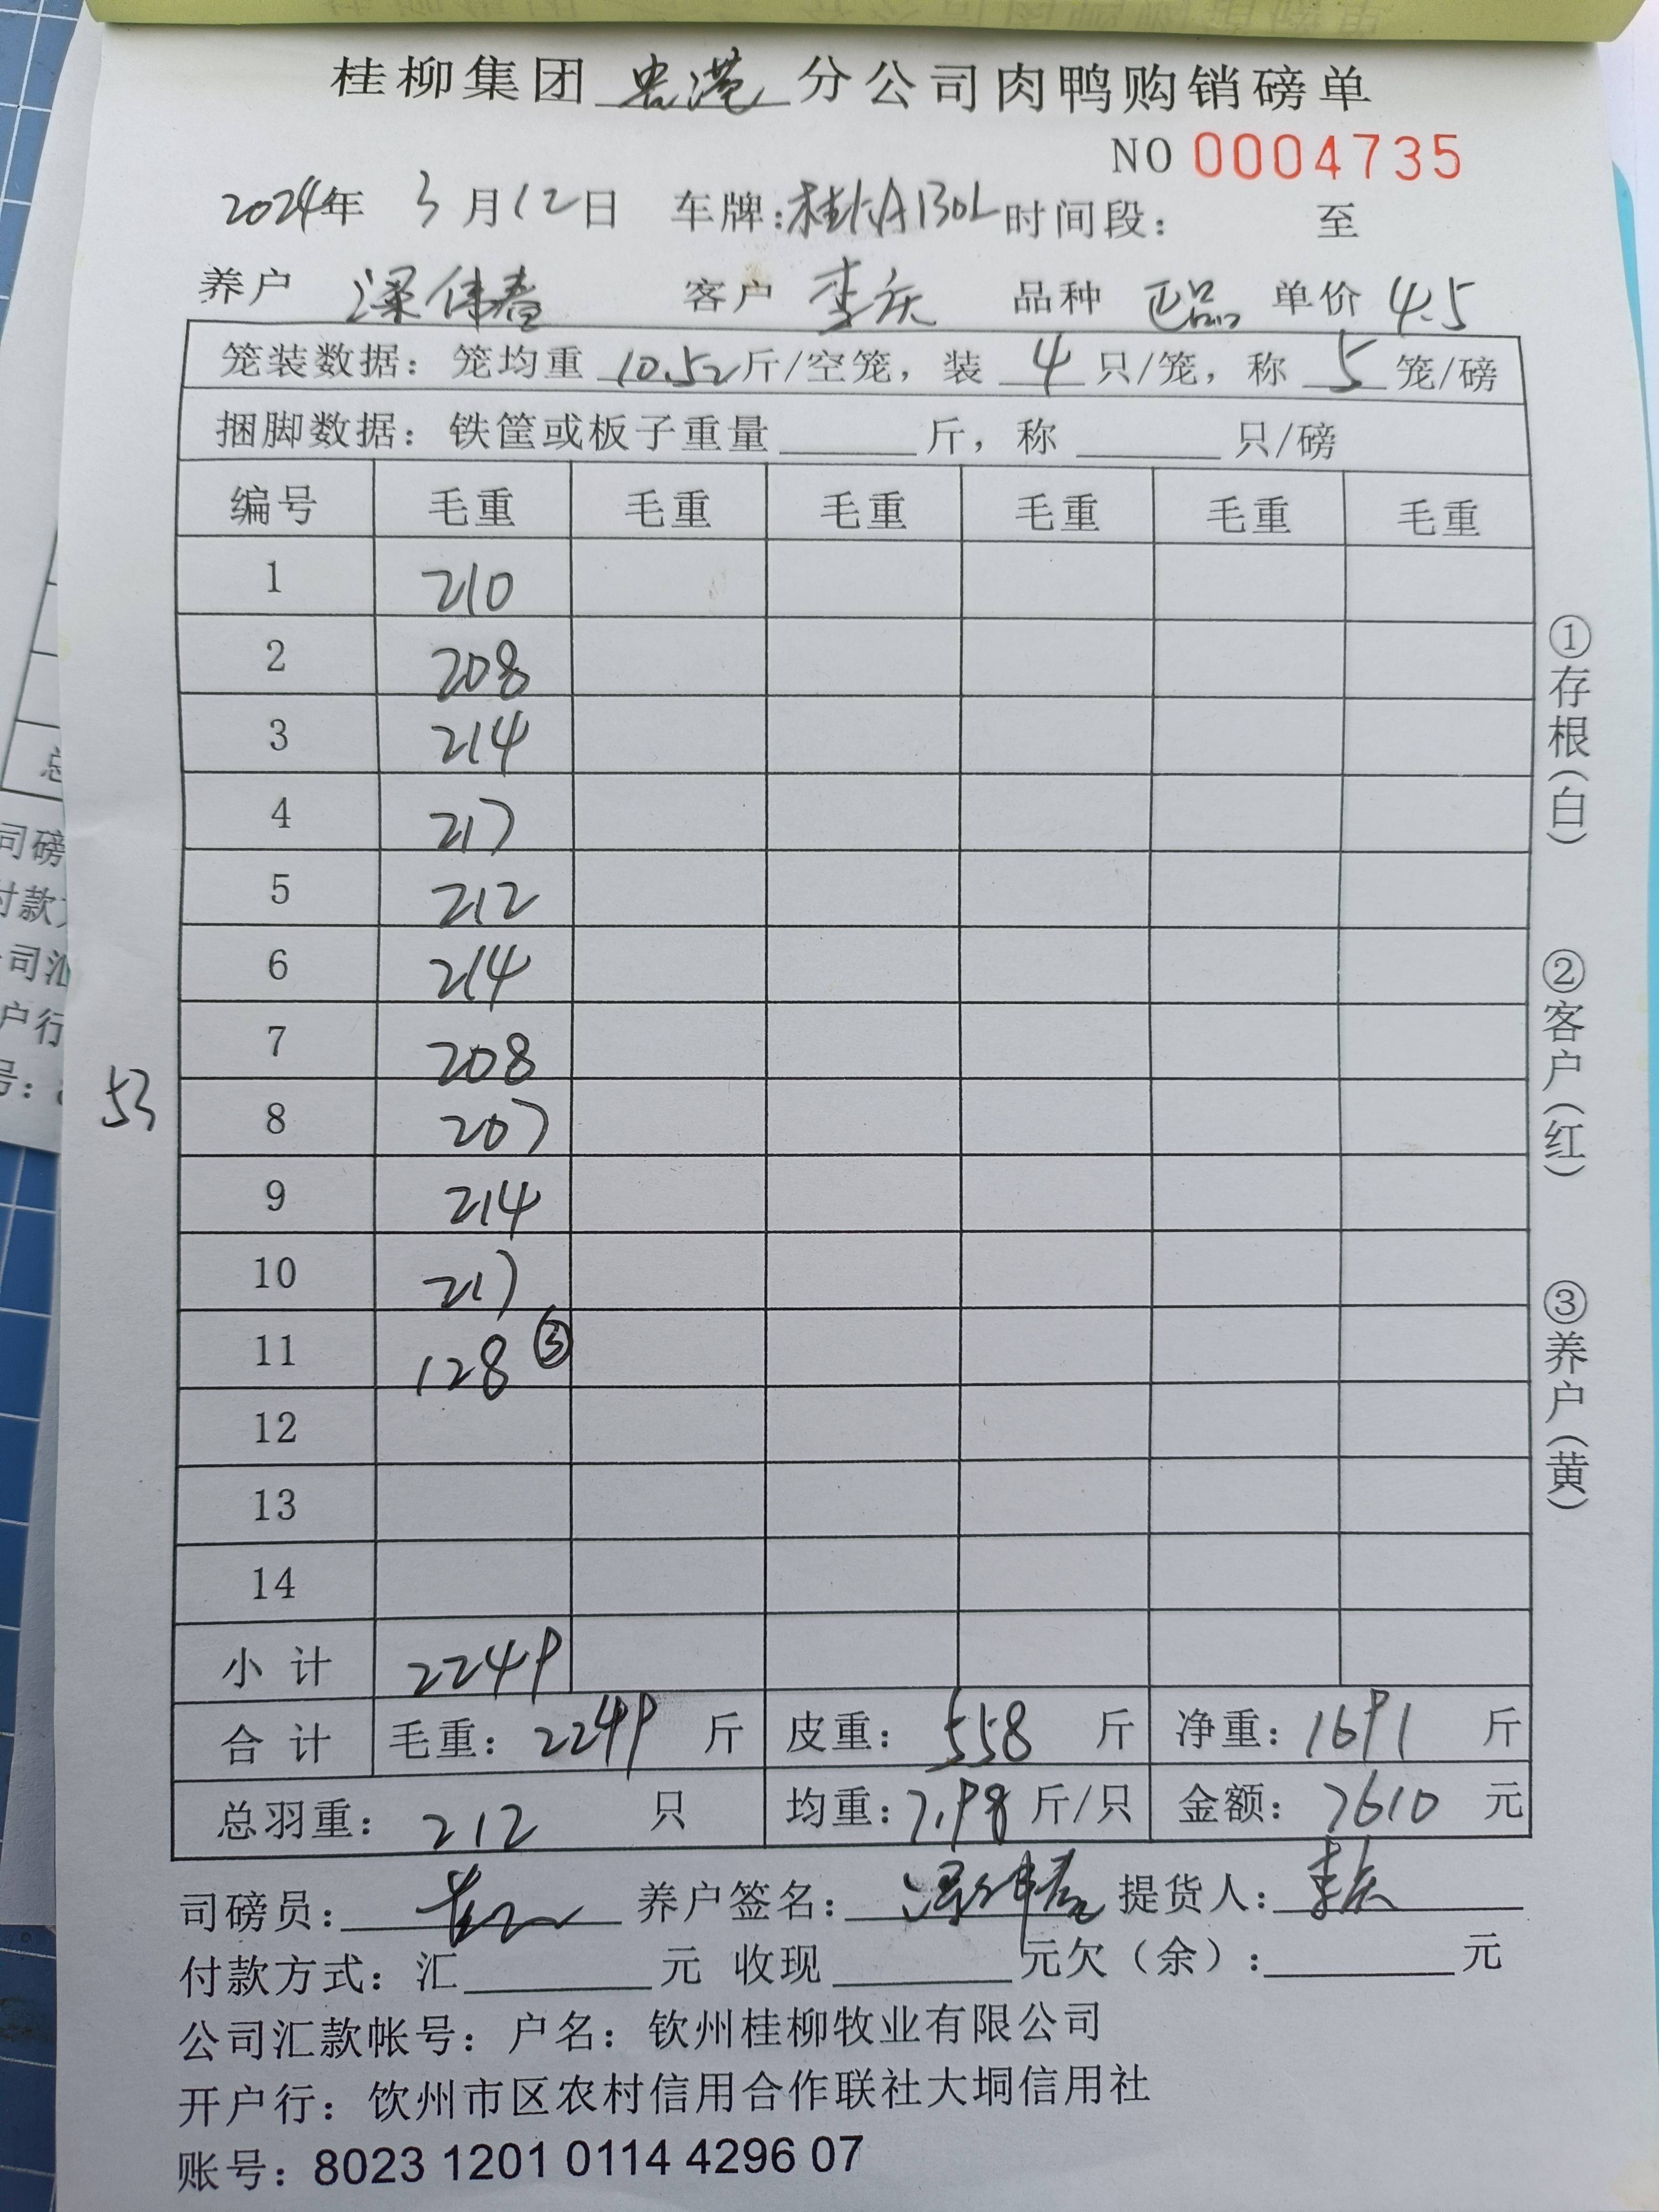 桂柳集团 贵港 分公司肉鸭购销磅单
NO 0004735
2024年 3月12日 车牌: 时间段： 至
养户 梁伟春 客户 李庆 品种 正品 单价 4.5
笼装数据：笼均重 10.52 斤/空笼，装 4 只/笼，称 5 笼/磅
捆脚数据：铁筐或板子重量 斤，称 只/磅
编号 毛重 毛重 毛重 毛重 毛重 毛重
1 210
2 208
3 214
4 217
5 212
6 214
7 208
53
8 207
9 214
10 217
11 128 ③
12
13
14
小计 2249
合计 毛重：2249 斤 皮重：558 斤 净重：1691 斤
总羽重：212 只 均重：7.98 斤/只 金额：7610 元
司磅员： 养户签名：梁伟春 提货人：李庆
付款方式：汇 元 收现 元欠（余）： 元
公司汇款帐号：户名：钦州桂柳牧业有限公司
开户行：钦州市区农村信用合作联社大垌信用社
账号：8023 1201 0114 4296 07
①存根（白）
②客户（红）
③养户（黄）
司磅
付款
司汇
户行
号：